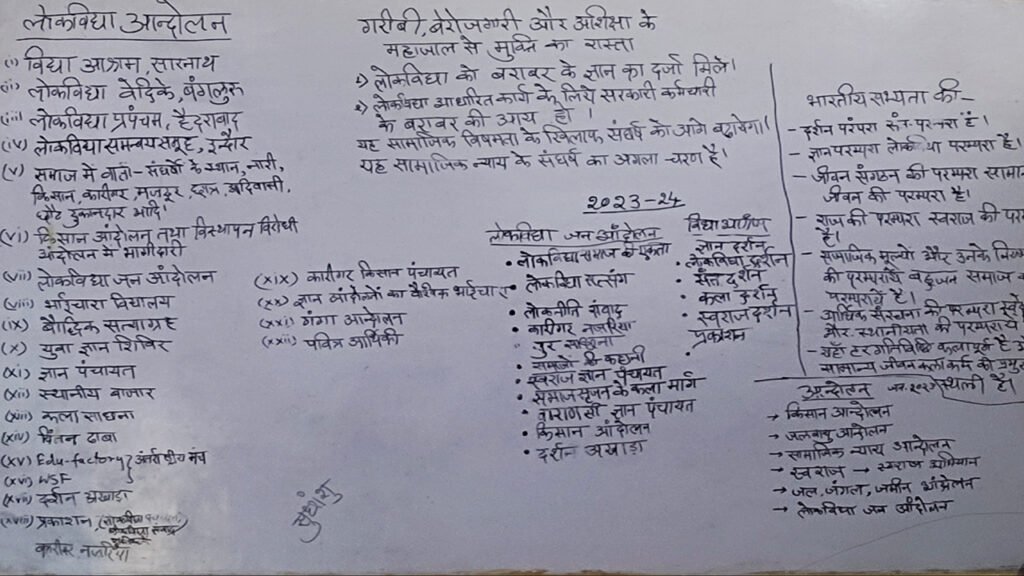 लोकविद्या आन्दोलन
(i) विद्या आश्रम, सारनाथ
(ii) लोकविद्या वेदिके, बंगलुरु
(iii) लोकविद्या प्रपंचम, हैदराबाद
(iv) लोकविद्या समन्वय समूह, इन्दौर
(v) समाज में वार्ता - संघर्षों के स्थान, नारी,
किसान, कारीगर, मजदूर, छात्र, आदिवासी,
छोटे दुकानदार आदि।
(vi) किसान आंदोलन तथा विस्थापन विरोधी
आंदोलन में भागीदारी
(vii) लोकविद्या जन आंदोलन
(viii) भाईचारा विद्यालय
(ix) बौद्धिक सत्याग्रह
(x) युवा ज्ञान शिविर
(xi) ज्ञान पंचायत
(xii) स्थानीय बाजार
(xiii) कला साधना
(xiv) चिंतन ढाबा
(xv) Edu-factory
(xvi) WSF
(xvii) दर्शन अखाड़ा
(xviii) प्रकाशन,
कारीगर नजरिया
(xix) कारीगर किसान पंचायत
(xx) ज्ञान आंदोलनों का वैश्विक भाईचारा
(xxi) गंगा आन्दोलन
(xxii) पवित्र आर्थिकी
सुधांशु
गरीबी, बेरोजगारी और अशिक्षा के
महाजाल से मुक्ति का रास्ता
१) लोकविद्या को बराबर के ज्ञान का दर्जा मिले।
२) लोकविद्या आधारित कार्य के लिये सरकारी कर्मचारी
के बराबर की आय हो।
यह सामाजिक विषमता के खिलाफ संघर्ष को आगे बढ़ायेगा।
यह सामाजिक न्याय के संघर्ष का अगला चरण है।
2023-24
लोकविद्या जन आंदोलन
• लोकविद्या समाज की एकता
• लोकविद्या सत्संग
• लोकनीति संवाद
• कारीगर नजरिया
• सुर साधना
• की कहानी
• स्वराज ज्ञान पंचायत
• समाज सृजन के कला मार्ग
• वाराणसी ज्ञान पंचायत
• किसान आंदोलन
• दर्शन अखाड़ा
विद्या आश्रम
ज्ञान दर्शन
• लोकविद्या दर्शन
• संत दर्शन
• कला दर्शन
• स्वराज दर्शन
प्रकाशन
भारतीय सभ्यता की -
- दर्शन परंपरा संत परम्परा है।
- ज्ञान परम्परा लोकविद्या परम्परा है।
- जीवन संगठन की परम्परा सामान्य
जीवन की परम्परा है।
- राज की परम्परा स्वराज की
है।
- सामाजिक मूल्यों और उनके
की परम्परायें बहुजन समाज
परम्परायें हैं।
- आर्थिक संरचना की परम्परा
और स्थानीयता की परम्परायें
- यहाँ हर गतिविधि कलापूर्ण है
सामान्य जीवन कला कर्म की
स्थली है।
आन्दोलन
→ किसान आन्दोलन
→ जलवायु आंदोलन
→ सामाजिक न्याय आन्दोलन
→ स्वराज → स्वराज अभियान
→ जल, जंगल, जमीन आंदोलन
→ लोकविद्या जन आंदोलन